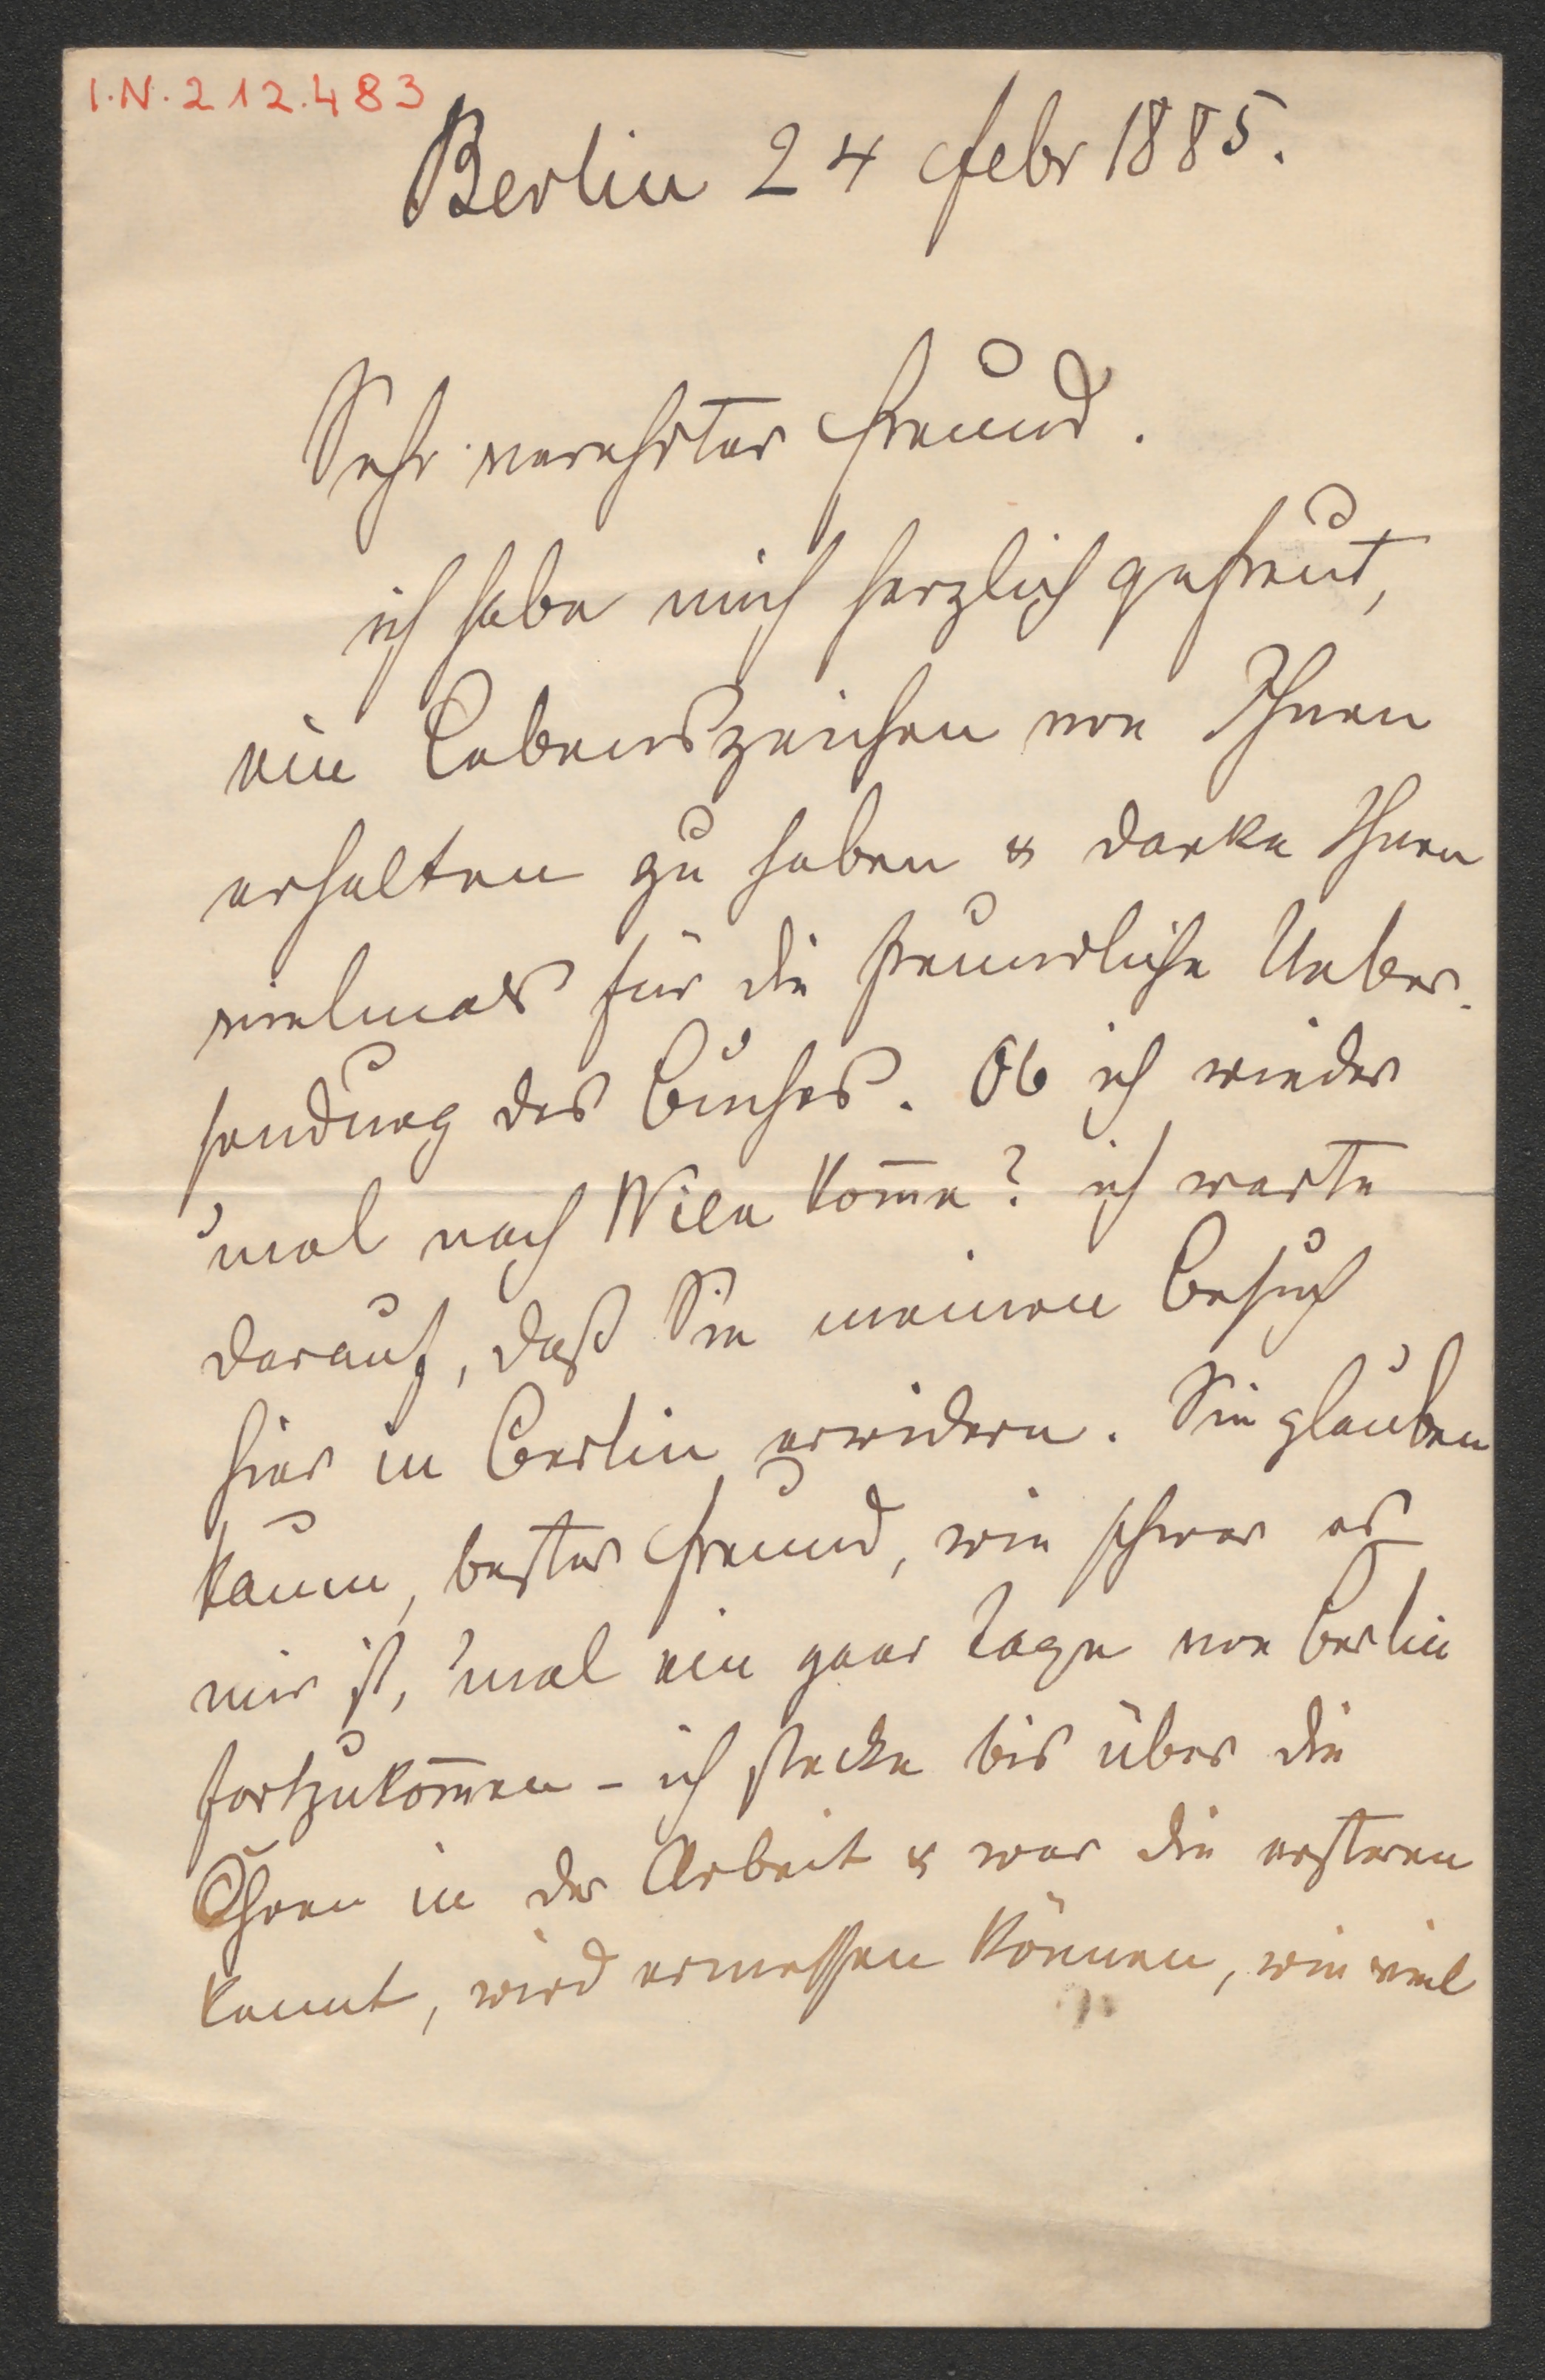 I.N. 212.483
Berlin 24 Febr 1885.
Sehr verehrter Freund.
ich habe mich herzlich gefreut,
ein Lebenszeichen von Ihnen
erhalten zu haben & danke Ihnen
vielmals für die freundliche Ueber-
sendung des Buches. Ob ich wieder
'mal nach Wien kom̅e? ich warte
darauf, daß Sie meinen Besuch
hier in Berlin erwidern. Sie glauben
kaum, bester Freund, wie schwer es
mir ist, 'mal ein paar Tage von Berlin
fortzukom̅en - ich stecke bis über die
Ohren in der Arbeit & wer die ersteren
kennt, wird ermessen können, wie viel